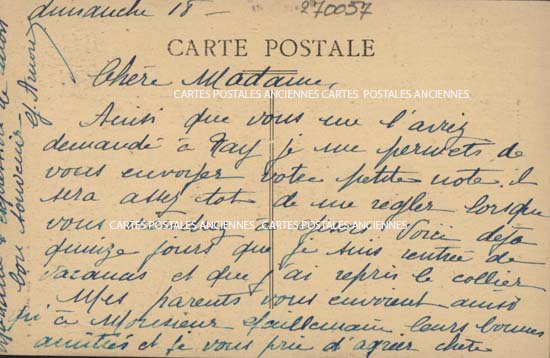 dimanche 18 -
270057
CARTE POSTALE
Chère Madame,
CARTES POSTALES ANCIENNES CARTES POSTALES ANCIENNES
Ainsi que vous me l'aviez
demandé à Nay je me permets de
vous envoyer votre petite note. il
sera assez tot de me regler lorsque
vous Voici déja
CARTES POSTALES ANCIENNES CARTES POSTALES ANCIENNES
quinze jours que je suis rentrée de
vacances et que j'ai repris le collier
Mes parents vous envoient ainsi
qu'à Monsieur leurs bonnes
amitiés et je vous prie d'agréer chère
Madame de mon
bon souvenir